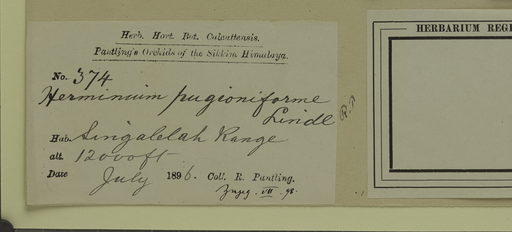 Herb. Hort. Bot. Calcuttensis.
Pantling's Orchids of the Sikkim Himalaya.
No. 374
Herminium pugioniforme
Lindl
Hab. Singalelah Range
alt. 12000 ft
Date July 1896. Coll. R. Pantling.
VII. 98.
HERBARIUM REGI